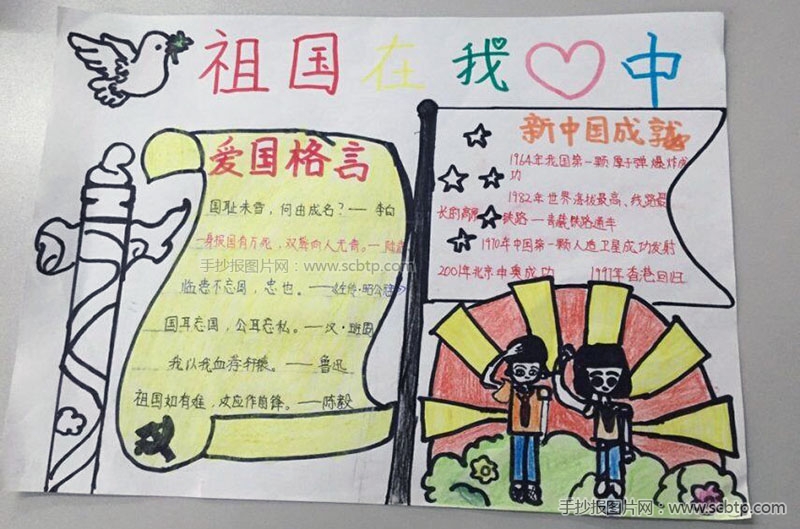 祖国在我中
爱国格言
国耻未雪，何由成名？——李白
身报国有万死，双鬓向人无青。——陆
手抄报图片网：www.scbtp.com
临患不忘国，忠也。——《左传·昭公
国耳忘国，公耳忘私。——汉·班固
我以我血荐轩辕。——鲁迅
祖国如有难，汝应作前锋。——陈毅
新中国成就
1964年我国第一颗原子弹爆炸成
功
1982年世界海拔最高、线路最
长的高原铁路——青藏铁路通车
1970年中国第一颗人造卫星成功发射
2001年北京申奥成功 1997年香港回归
手抄报图片网：www.scbtp.com